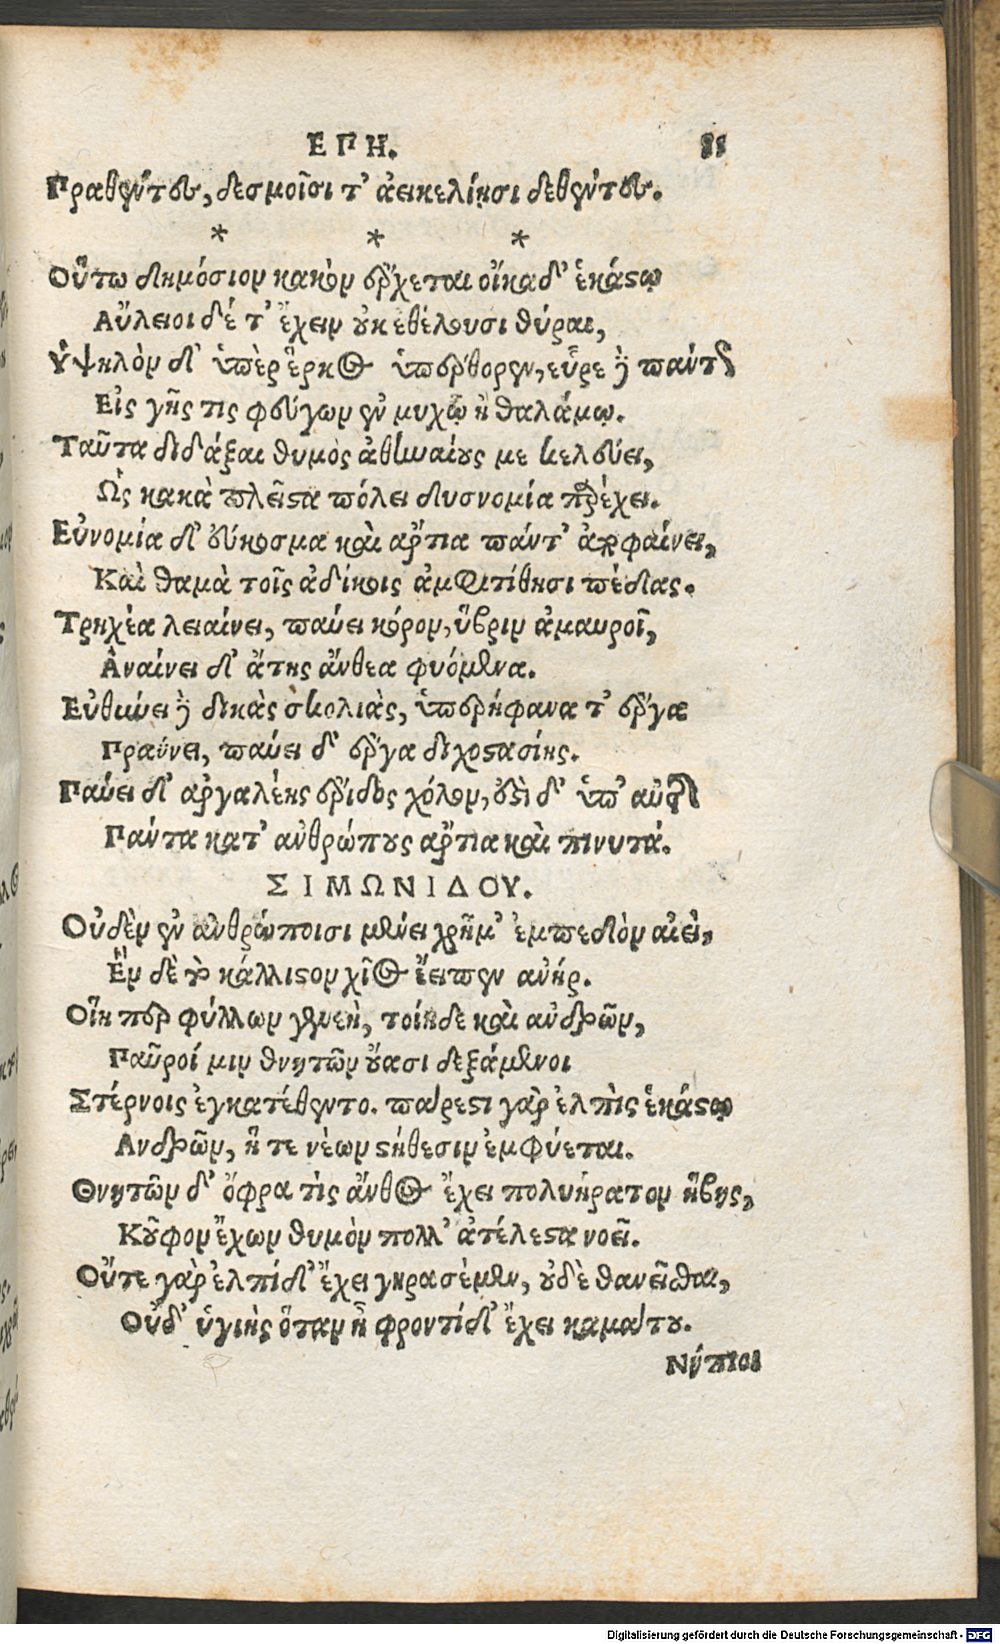 ΕΠΗ. 81
Πραθέντες, δεσμοῖσί τ' ἀεικελίησι δεθέντες.
* * *
Οὕτω δημόσιον κακὸν ἔρχεται οἴκαδ' ἑκάστῳ
Αὔλειοι δέ τ' ἔχειν οὐκ ἐθέλουσι θύραι,
Ὑψηλὸν δ' ὑπὲρ ἕρκος ὑπέρθορεν, εὗρε δὲ πάντως
Εἰς γῆς τις φεύγων ἐν μυχῷ ἢ θαλάμῳ.
Ταῦτα διδάξαι θυμὸς ἀθηναίους με κελεύει,
Ὡς κακὰ πλεῖστα πόλει δυσνομία παρέχει.
Εὐνομία δ' εὔκοσμα καὶ ἄρτια πάντ' ἀποφαίνει,
Καὶ θαμὰ τοῖς ἀδίκοις ἀμφιτίθησι πέδας.
Τρηχέα λειαίνει, παύει κόρον, ὕβριν ἀμαυροῖ,
Ἀναίνει δ' ἄτης ἄνθεα φυόμενα.
Εὐθύνει δὲ δικὰς σκολιὰς, ὑπερήφανα τ' ἔργα
Πραΰνει, παύει δ' ἔργα διχοστασίης.
Παύει δ' ἀργαλέης ἔριδος χόλον, ἔστι δ' ὑπ' αὐτῆς
Πάντα κατ' ἀνθρώπους ἄρτια καὶ πινυτά.
ΣΙΜΩΝΙΔΟΥ.
Οὐδὲν ἐν ἀνθρώποισι μένει χρῆμ' ἐμπεδὸν αἰεὶ,
Ἓν δὲ τὸ κάλλιστον χῖος ἔειπεν ἀνήρ.
Οἵη περ φύλλων γενεὴ, τοίηδε καὶ ἀνδρῶν,
Παῦροί μιν θνητῶν οὔασι δεξάμενοι
Στέρνοις ἐγκατέθεντο. πάρεστι γὰρ ἐλπὶς ἑκάστῳ
Ἀνδρῶν, ἥ τε νέων στήθεσιν ἐμφύεται.
Θνητῶν δ' ὄφρα τὶς ἄνθος ἔχει πολυήρατον ἥβης,
Κοῦφον ἔχων θυμὸν πολλ' ἀτέλεστα νοεῖ.
Οὔτε γὰρ ἐλπίδ' ἔχει γηρασέμεν, οὐδὲ θανεῖσθαι,
Οὐδ' ὑγιὴς ὅταν ᾖ φροντίδ' ἔχει καμάτου.
Νήπιοι
Digitalisierung gefördert durch die Deutsche Forschungsgemeinschaft - DFG